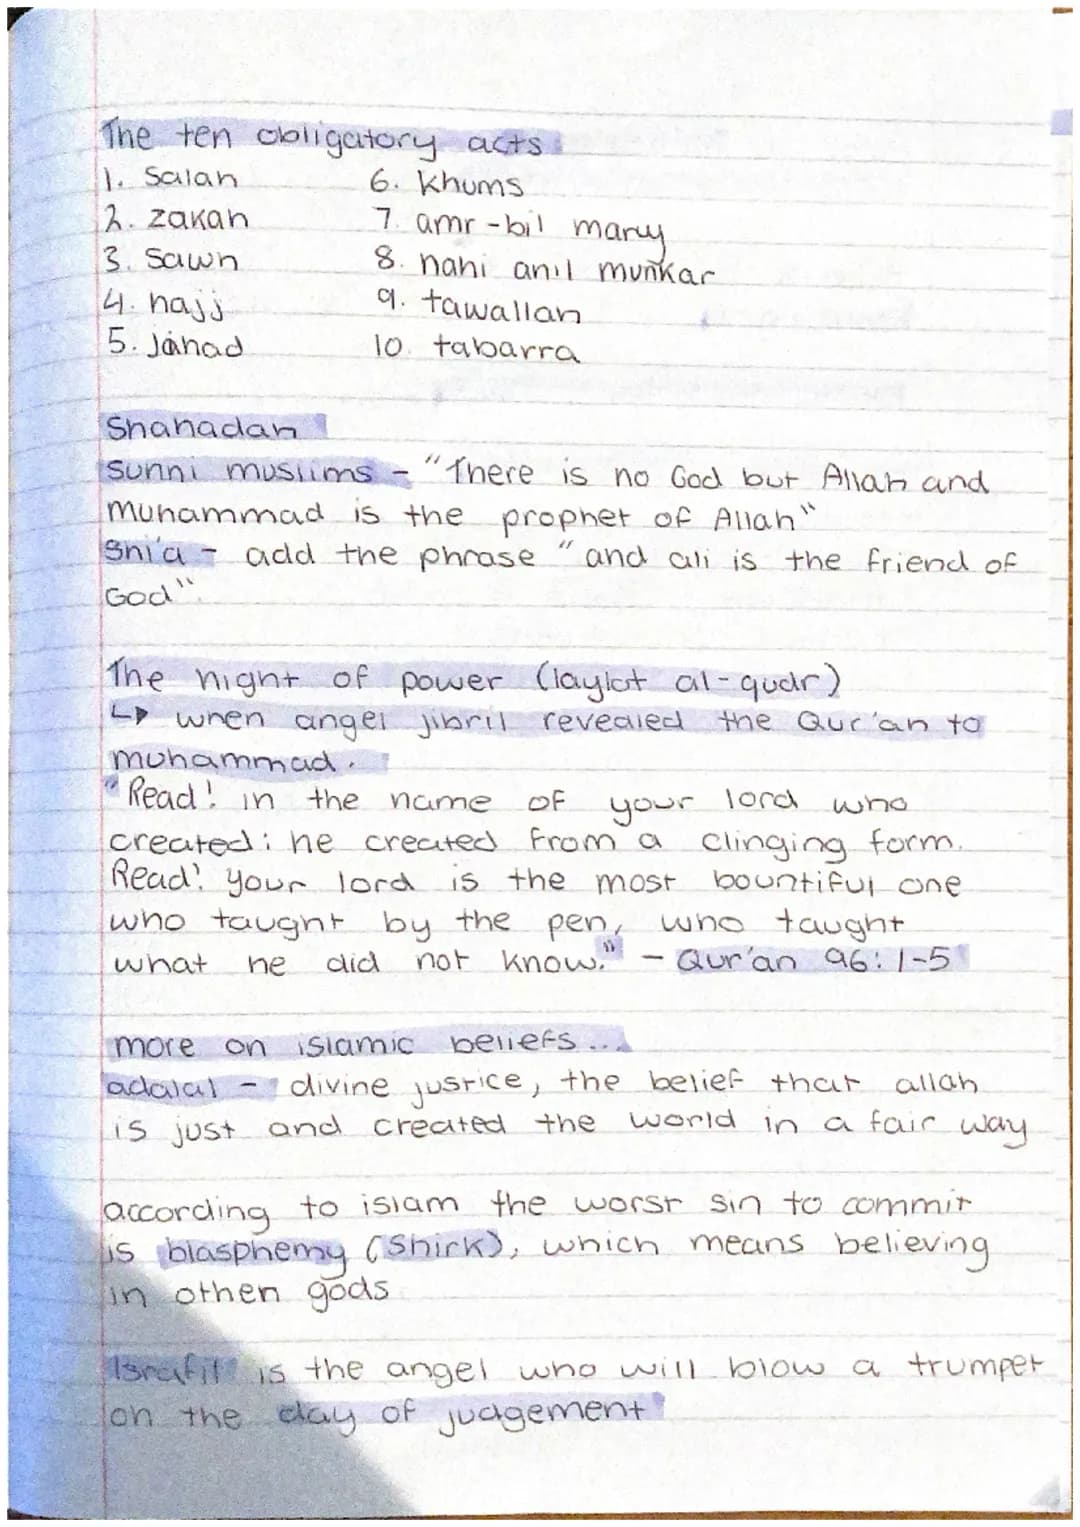 The ten obligatory acts
1. Salah 6. khums
2. zakah 7. amr-bil maruf
3. Sawn 8. nahi anil munkar
4. hajj 9. tawallah
5. Jahad 10. tabarra
Shahadah
Sunni muslims - "There is no God but Allah and
Muhammad is the prophet of Allah"
Shi'a - add the phrase "and ali is the friend of
God".
The night of power (laylat al-qudr)
↳ when angel jibril revealed the Qur'an to
muhammad.
"Read! in the name of your lord who
created: he created from a clinging form.
Read! your lord is the most bountiful one
who taught by the pen, who taught
what he did not know." - Qur'an 96:1-5
more on islamic beliefs...
adalal - divine justice, the belief that allah
is just and created the world in a fair way
according to islam the worst sin to commit
is blasphemy (Shirk), which means believing
in other gods
Israfil is the angel who will blow a trumpet
on the day of judgement